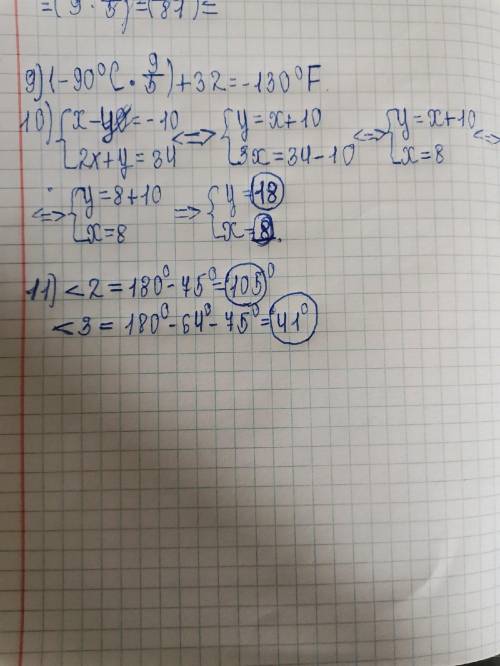 =(9 · 5)=(81)=
9) (-90°C · 9/5) + 32 = -130°F.
10) { x - y = -10 <=> { y = x + 10 <=> { y = x + 10 <=>
{ 2x + y = 34 { 3x = 34 - 10 { x = 8
<=> { y = 8 + 10 => { y = 18
{ x = 8 { x = 8.
11) < 2 = 180° - 75° = 105°
< 3 = 180° - 64° - 75° = 41°